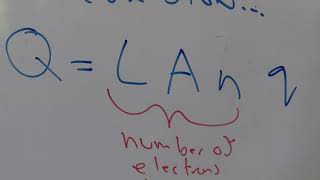 Q = L A n q
number of
electrons